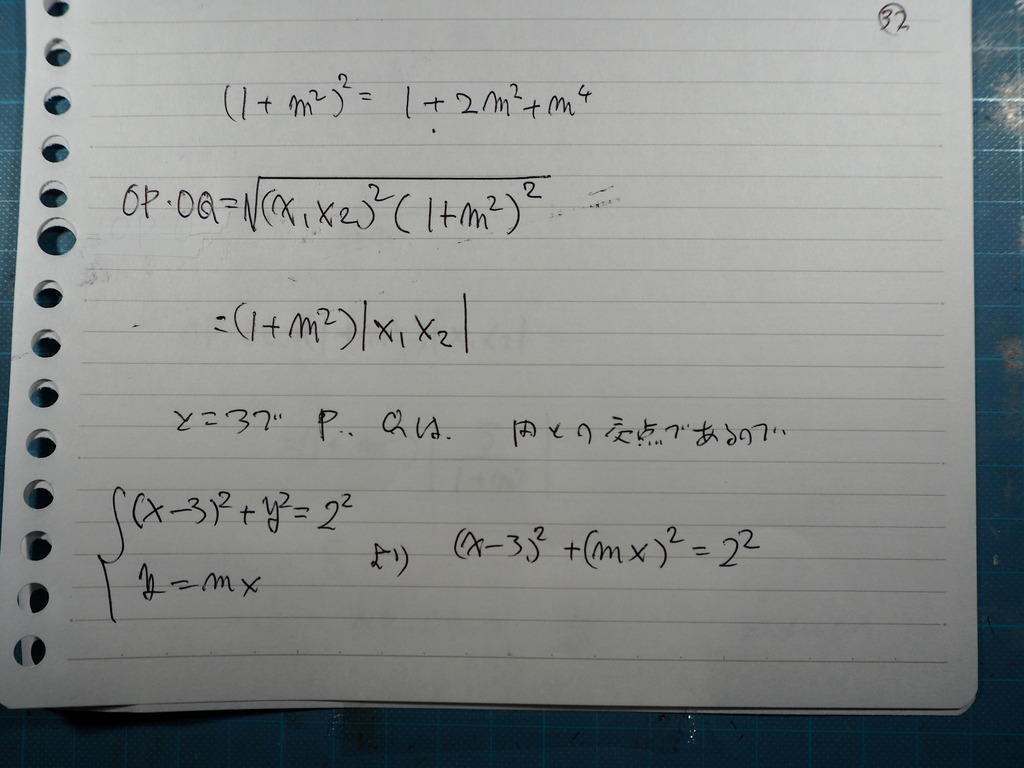 32
(1+m²)² = 1+2m²+m⁴
OP・OQ=√(x₁x₂)²(1+m²)²
=(1+m²)|x₁x₂|
ところで P、Qは、円との交点であるので、
(x-3)²+y²=2²
y=mx
より (x-3)²+(mx)²=2²